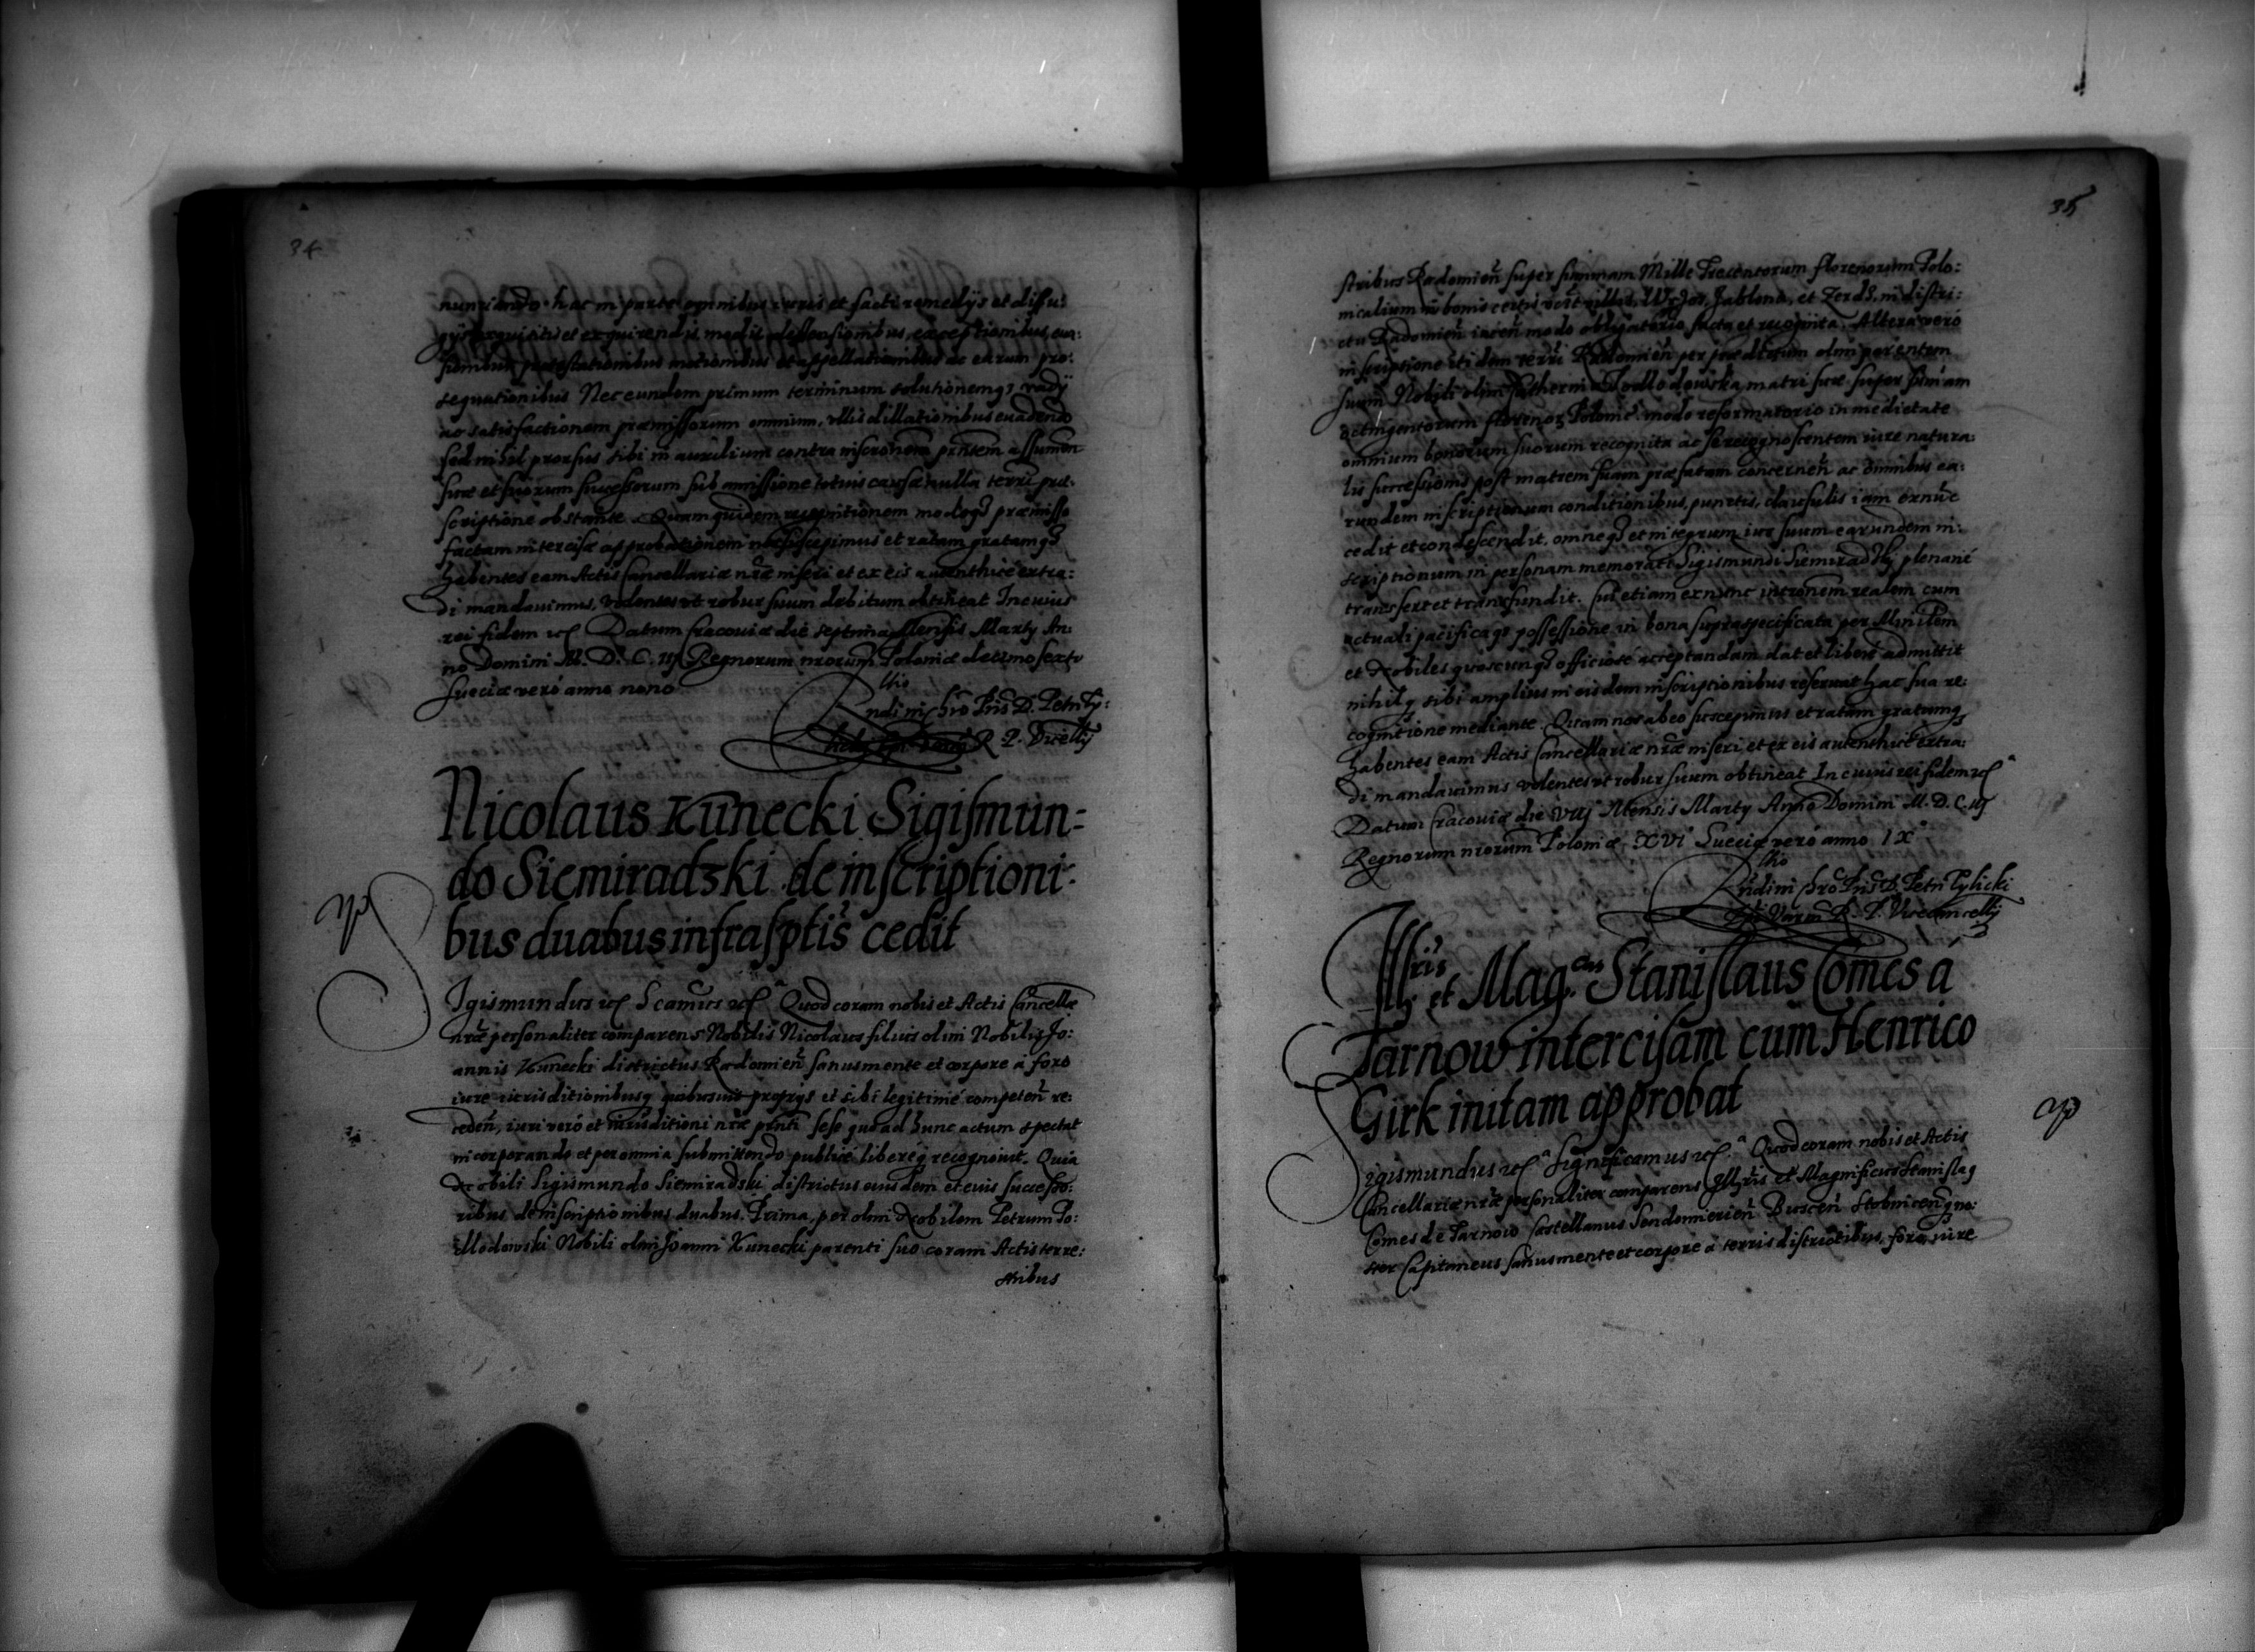 34
nunciando hac in parte omnibus iuris et facti remedijs et diffu:
gijs exquisitis et exquirendis modis defensionibus, exceptionibus, eua:
sionibus protestationibus motionibus et appellationibus ac earum pro:
sequutionibus Nec eundem primum terminum solutionemq3 vadÿ
ac satisfactionem præmissorum omnium, vllis dillationibus euadendo
sed nihil prorsus sibi in auxilium contra inscrōnem pn̄tem assumen
suæ et suorum successorum sub amissione totius causæ nulla terræ præ:
scriptione obstante. Quam quidem recognitionem modoq3 præmisso
factam intercisæ approbationem nos suscepimus et ratam gratamq3
habentes eam Actis Cancellariæ nr̄æ inseri et ex eis authenthicè extra:
di mandauimus, volentes vt robur suum debitum obtineat In cuius
rei fidem etc Datum Cracouiæ die septima Mensis Martij An:
no Domini M. D. C. iij Regnorum nrorum Poloniæ decimo sexto
Sueciæ verò anno nono
llio
Rndi in Chro Pris D. Petri Ty:
R. P. Vicellij
Nicolaus Kunecki Sigismun=
do Siemiradzki de inscriptioni:
bus duabus infrasptis cedit
Igismundus etc Scamus etc Quod coram nobis et Actis Cancellæ
nræ personaliter comparens Nobilis Nicolaus filius olim Nobilis Jo:
annis Kunecki districtus Radomien̄ sanus mente et corpore à foro
iure iurisditionibusq quibusuis proprijs et sibi legitimè competen̄ re:
ceden̄, iuri verò et iurisditioni nræ pn̄ti sese quo ad hunc actum spectat
incorporando et per omnia submittendo publicè liberèq recognouit. Quia
Nobili Sigismundo Siemiradski districtus eiusdem et eius successo:
ribus de inscriptionibus duabus. Prima, per olim Nobilem Petrum Po:
dlodowski Nobili olim Joanni Kunecki parenti suo coram Actis terre:
stribus
35
stribus Radomien̄ super summam Mille Trecentorum florenorum Polo:
nicalium in bonis certis villis, Jablona, et in distri:
ctu Radomien̄ iacen̄ modo obligatorio facta et recognita. Altera verò
inscriptione itidem terrī Radomien̄ per prædictum olim parentem
suum Nobili olim Podlodowska matri suæ super sum̄am
octingentorum florenoꝝ Polonic̄ modo reformatorio in medietate
omnium bonorum suorum recognita ac se recognoscentem iure natura:
lis successionis post matrem suam præfatam concernen̄ ac omnibus ea:
rundem inscriptionum conditionibus, punctis, clausulis iam exnūc
cedit et condescendit. omneq3 et integrum ius suum earundem in:
scriptionum in personam memorati Sigismundi Siemiradzkij plenariè
transfert et transfundit. cui etiam exnunc intronem realem cum
actuali pacificaq3 possessione in bona supraspecificata per Ministem
et Nobiles quoscunq3 officiosè acceptandam dat et liberè admittit
nihilq sibi amplius in eisdem inscriptionibus reseruat hac sua re:
cognitione mediante. Quam nos ab eo suscepimus et ratam gratamq
habentes eam Actis Cancellariæ nr̄æ inseri et ex eis autenthicè extra:
di mandauimus volentes vt robur suum obtineat In cuius rei fidem etc
Datum Cracouiæ die VIIj Mensis Martij Anno Domini M. D. C. iij
Regnorum nrorum Poloniæ XVI Sueciæ verò anno IX
llio
Rndi in Chro Pris D. Petri Tylicki
R. P. Vicecancellij
Illris et Mag.cus Stanislaus Comes à
Tarnow intercisam cum Henrico
Girk initam approbat
Sigismundus etc Significamus etc Quod coram nobis et Actis
Cancellariæ nræ personaliter comparens Illris et Magnificus Stanislaq
Comes de Tarnow Castellanus Sendomirien̄ Buscen̄ Stobnicen̄q no:
ster Capitaneus sanus mente et corpore à terris districtibus, foro, iure